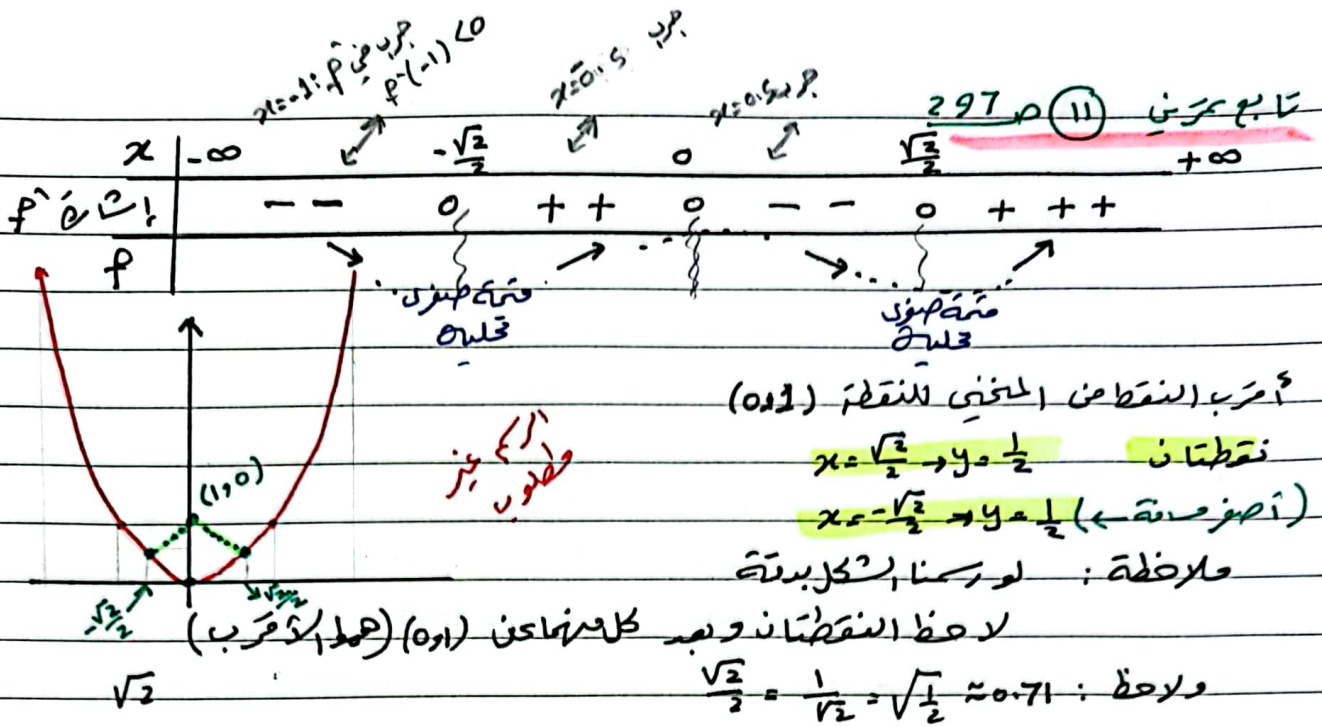 تابع تمرين (11) ص 297
x=-1: جرب في f´ f´(-1)<0
x=-0.5 جرب
x=0.5 جرب
x -∞ -√2/2 0 √2/2 +∞
إشارة f´ - - 0 + + 0 - - 0 + + +
f
قيمة صغرى محلية
قيمة صغرى محلية
أقرب النقط من المنحني للنقطة (0,1)
نقطتان x=√2/2 → y=1/2
(أصغر مسافة ←) x=-√2/2 → y=1/2
الرسم غير مطلوب
(1,0)
-√2/2 √2/2
ملاحظة : لو رسمنا الشكل بدقة
لاحظ النقطتان وبعد كل منهما عن (0,1) (هما الأقرب)
ولاحظ : √2/2 = 1/√2 = √1/2 ≈ 0.71
√2